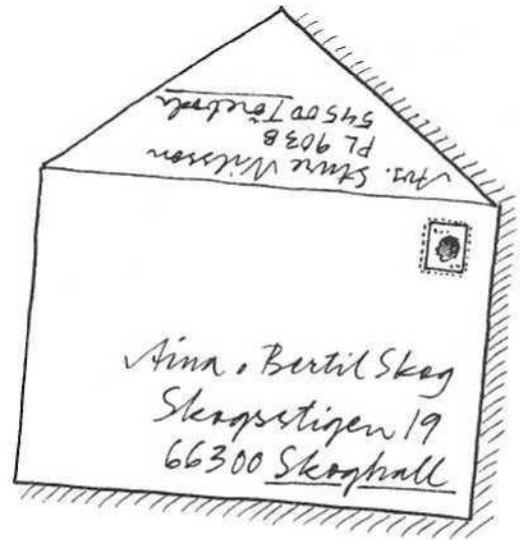 Avs. Sture Nilsson
PL 903 B
54500 Töreboda
Aina o Bertil Skog
Skogsstigen 19
66300 Skoghall